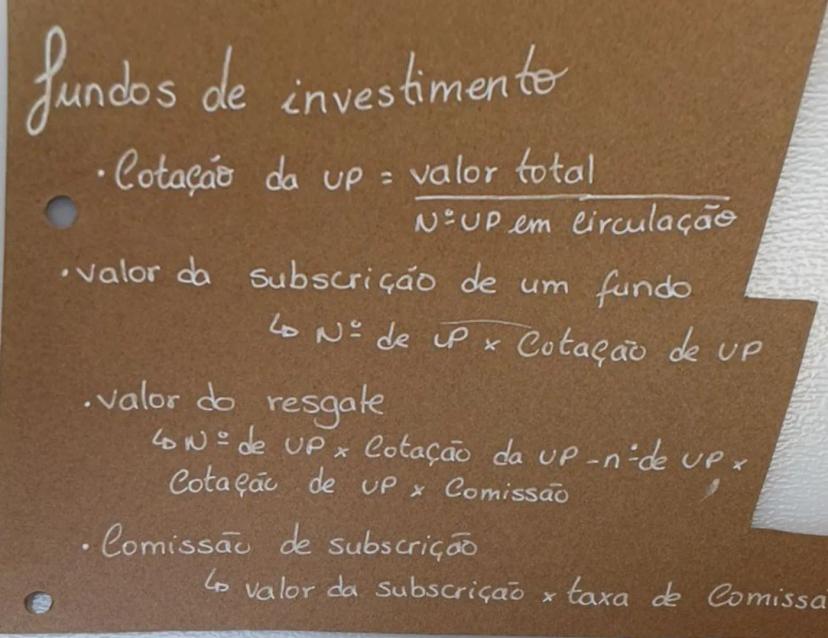 fundos de investimento
• Cotação da UP = valor total
Nº UP em circulação
• valor da subscrição de um fundo
↳ Nº de UP x Cotação de UP
• valor do resgate
↳ Nº de UP x Cotação da UP - nº de UP x
Cotação de UP x Comissão
• Comissão de subscrição
↳ valor da subscrição x taxa de Comissa